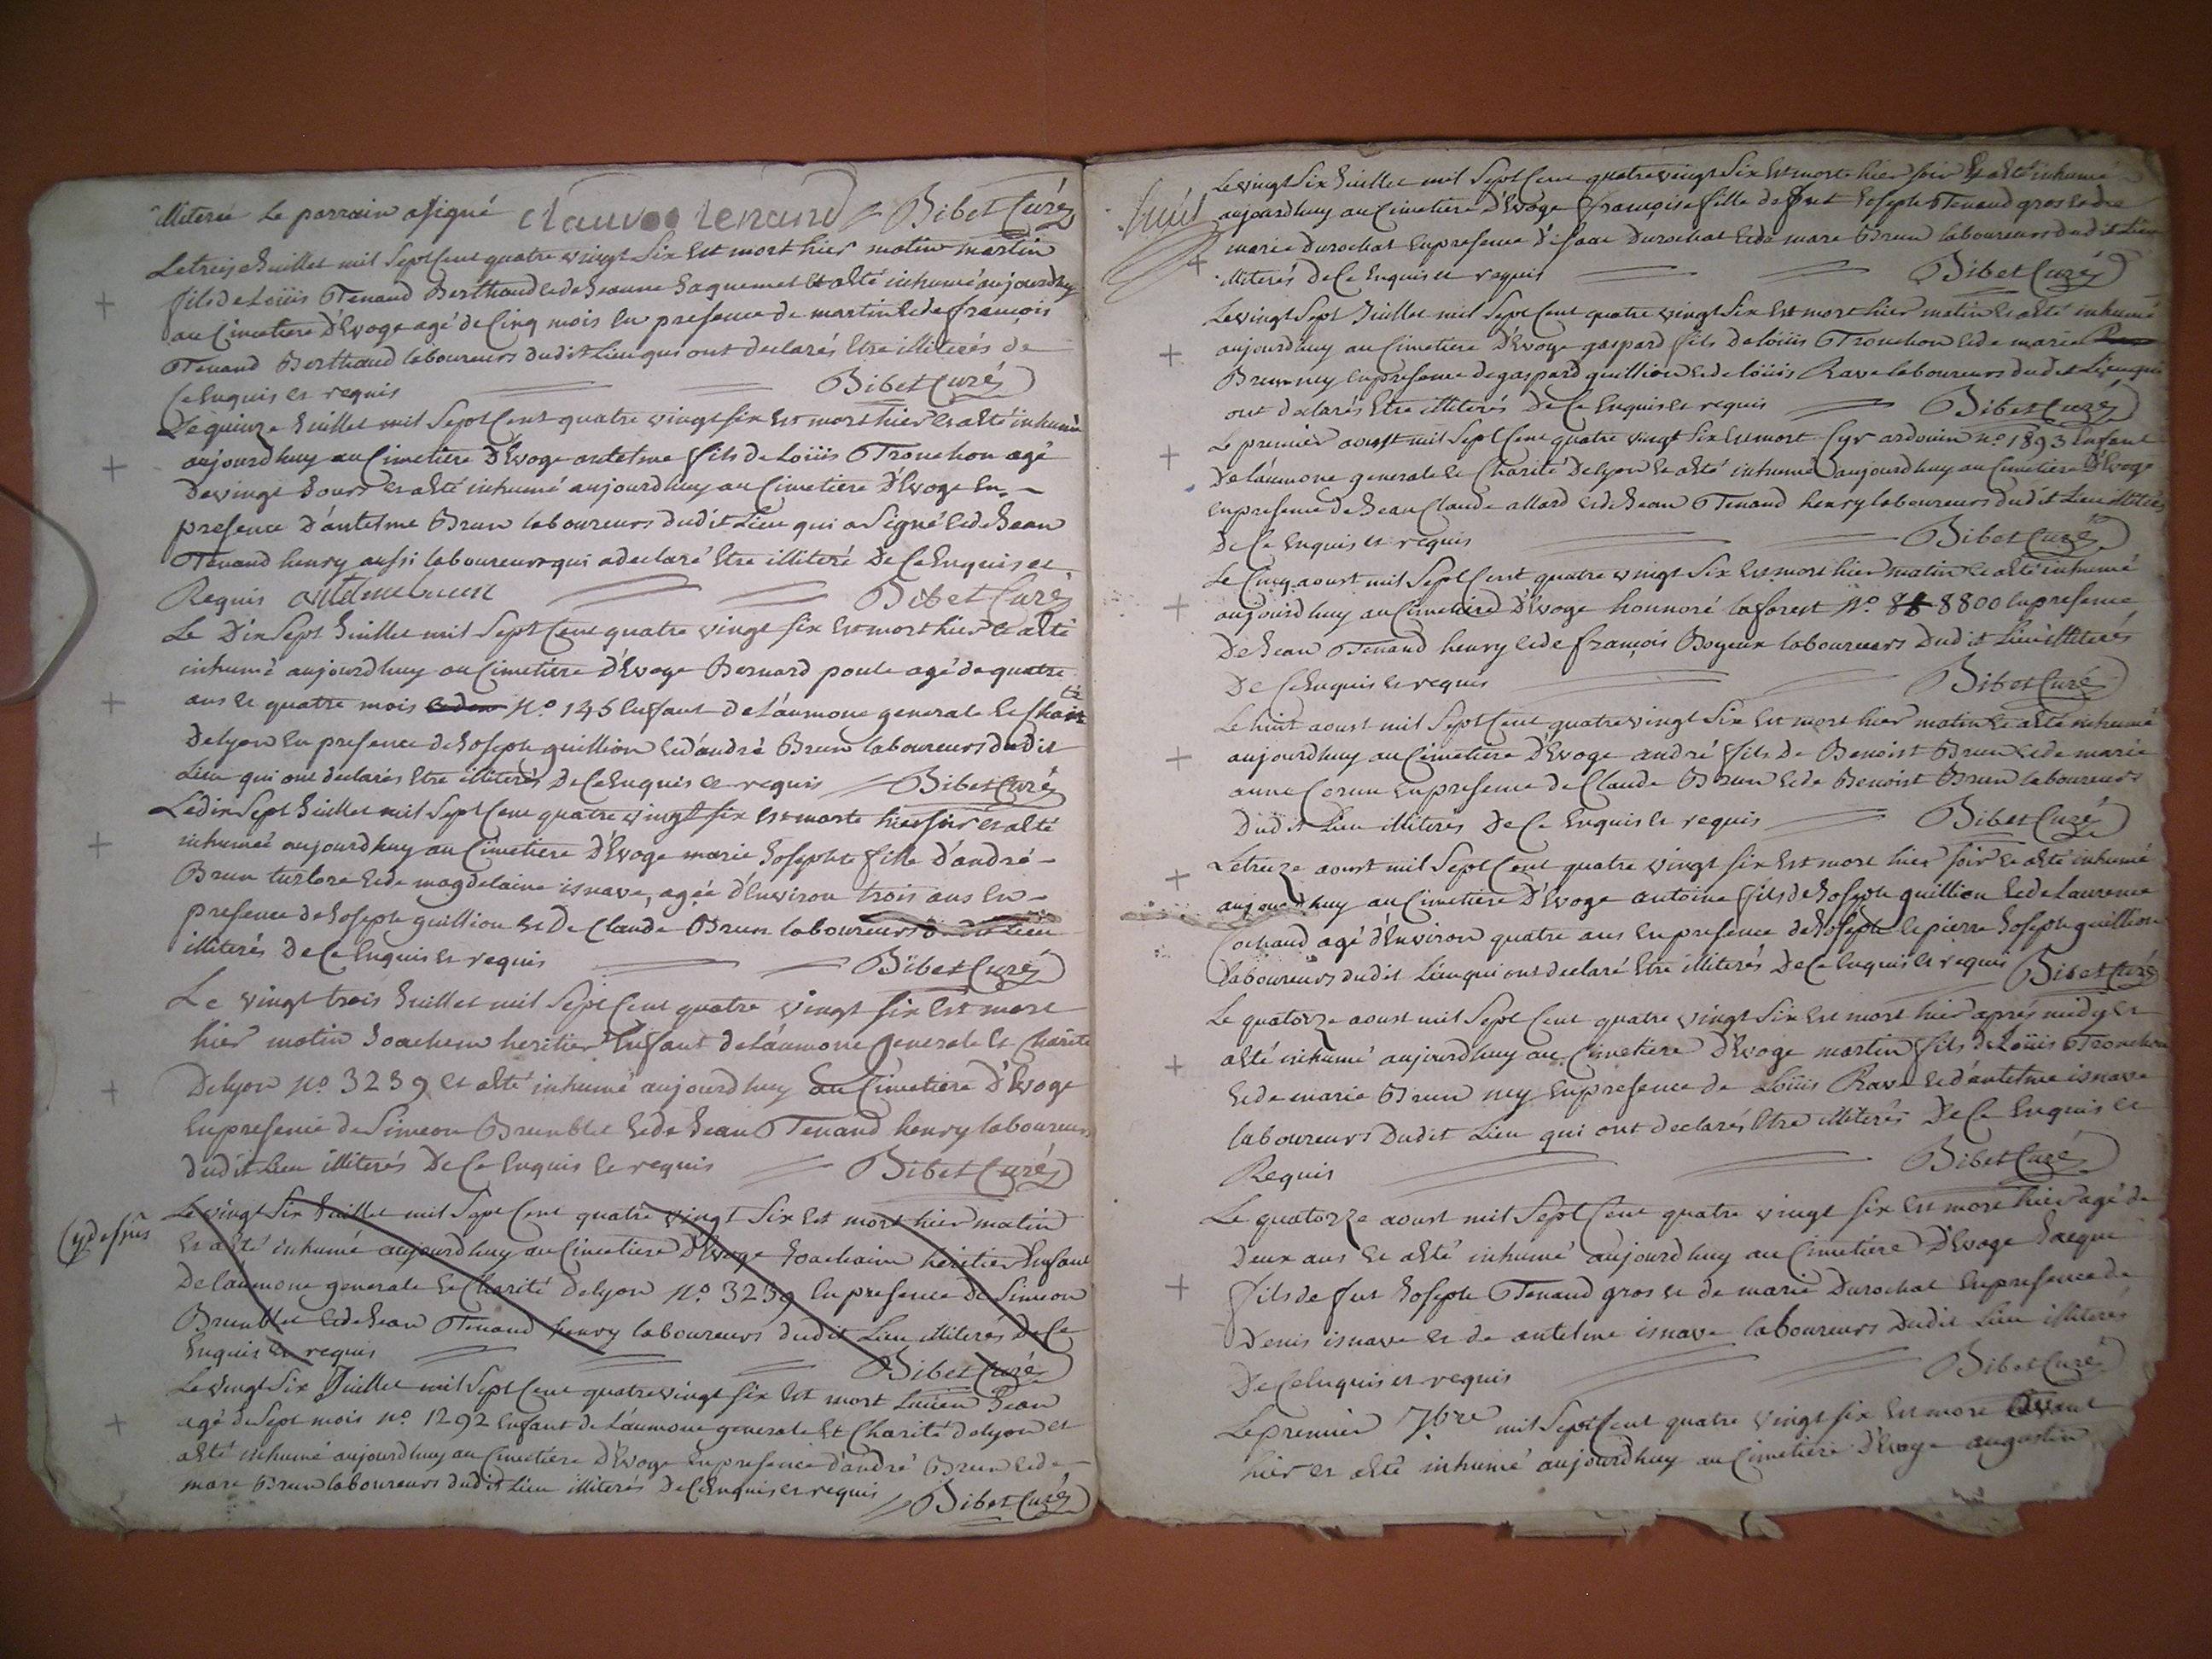 illiterée Le parrain asigné claude tenand Bibet Curé
Le treise Juillet mil Sept Cent quatre vingt Six Est mort hier matin martin
fils de Loüis Tenand Berthaud et de Jeanne Jaquemet Et a Eté inhumé aujourdhuy
au Cimetiere D'Evoge agé de Cinq mois En presence de martin et de françois
Tenand Berthaud laboureurs dudit Lieu qui ont declarés Etre illiterés de
Ce Enquis et requis Bibet Curé
Le quinze Juillet mil Sept Cent quatre vingt six Est mort hier et a Eté inhumé
aujourdhuy au Cimetiere D'Evoge antelme fils de Loüis Tronchon agé
De vingt Jours et a Eté inhumé aujourdhuy au Cimetiere D'Evoge En
presence D'antelme Brun laboureurs dudit Lieu qui a Signé et de Jean
Tenand henry aussi laboureur qui a declaré Etre illiteré De Ce Enquis et
Requis Bibet Curé
Le Dix Sept Juillet mil Sept Cent quatre vingt six Est mort hier et a Eté
inhumé aujourdhuy au Cimetiere D'Evoge Bernard poule agé de quatre
ans et quatre mois N.o 145 Enfant de L'aumone generale et Charité
De lyon En presence de Joseph guillion et d'andré Brun laboureurs dudit
Lieu qui ont declarés Etre illiterés De Ce Enquis et requis Bibet Curé
Le dix Sept Juillet mil Sept Cent quatre vingt six Est morte hier soir et a Eté
inhumeé aujourdhuy au Cimetiere D'Evoge marie Josephte fille D'andré
Brun et de magdelaine isnave, ageé d'Environ trois ans En
presence de Joseph guillion et De Claude Brun laboureurs dudit Lieu
illiterés De Ce Enquis et requis Bibet Curé
Le vingt trois Juillet mil Sept Cent quatre vingt six Est mort
hier matin Joachem heritier Enfant de L'aumone generale et Charité
De lyon N.o 3239 et a Eté inhumé aujourdhuy au Cimetiere D'Evoge
En presence de Simeon Brunblet et de Jean Tenand henry laboureurs
dudit Lieu illiterés De Ce Enquis et requis Bibet Curé
Cy dessus
Le vingt Six Juillet mil Sept Cent quatre vingt Six Est mort hier matin
Et a Eté inhumé aujourdhuy au Cimetiere D'Evoge Joachaim heritier Enfant
De laumone generale et Charité De lyon N.o 3239 En presence de Simeon
Brunblet et de Jean Tenand henry laboureurs dudit Lieu illiterés De Ce
Enquis et requis Bibet Curé
Le vingt Six Juillet mil Sept Cent quatre vingt six Est mort Lucien Jean
agé de Sept mois N.o 1292 Enfant de L'aumone generale Et Charité de lyon et
a Eté inhumé aujourdhuy au Cimetiere D'Evoge En presence d'andré Brun et de
marc Brun laboureurs dudit Lieu illiterés De Ce Enquis et requis Bibet Curé
huit
Le vingt Six Juillet mil Sept Cent quatre vingt Six Est morte hier soir Et a Eté inhumé
aujourdhuy au Cimetiere D'Evoge françoise fille de fut Joseph Tenand gros et de
marie Durochat En presence D'isaac Durochat et de marc Brun laboureurs dudit Lieu
illiterés De Ce Enquis et requis Bibet Curé
Le vingt Sept Juillet mil Sept Cent quatre vingt Six Est mort hier matin et a Eté inhumé
aujourdhuy au Cimetiere D'Evoge gaspard fils de Loüis Tronchon et de marie
Brun ney En presence de gaspard guillion et de loüis Rave laboureurs dudit Lieu qui
ont declarés Etre illiterés De Ce Enquis et requis Bibet Curé
Le premier aoust mil Sept Cent quatre vingt Six Est mort Cyr ardouin N.o 1893 Enfant
De L'aumone generale et Charité De lyon et a Eté inhumé aujourdhuy au Cimetiere D'Evoge
En presence de Jean Claude allard et de Jean Tenand henry laboureurs dudit Lieu illiterés
De Ce Enquis et requis Bibet Curé
Le Cinq aoust mil Sept Cent quatre vingt Six Est mort hier matin et a Eté inhumé
aujourdhuy au Cimetiere D'Evoge honnoré laforest N.o 8800 En presence
De Jean Tenand henry et de françois Boyeux laboureurs Dudit Lieu illiterés
De Ce Enquis et requis Bibet Curé
Le huit aoust mil Sept Cent quatre vingt Six Est mort hier matin et a Eté inhumé
aujourdhuy au Cimetiere D'Evoge andré fils de Benoist Brun et de marie
anne Corun En presence de Claude Brun et de Benoist Brun laboureurs
Dudit Lieu illiterés De Ce Enquis et requis Bibet Curé
Le treize aoust mil Sept Cent quatre vingt six Est mort hier soir et a Eté inhumé
aujourdhuy au Cimetiere D'Evoge antoine fils de Joseph guillion et de Laurence
Cochaud agé d'Environ quatre ans En presence de Joseph et pierre Joseph guillion
laboureurs dudit Lieu qui ont declaré Etre illiterés De Ce Enquis et requis Bibet Curé
Le quatorze aoust mil Sept Cent quatre vingt Six Est mort hier aprés midy et
a Eté inhumé aujourdhuy au Cimetiere D'Evoge martin fils de Loüis Tronchon
et de marie Brun ney En presence de Loüis Rave et d'antelme isnave
laboureurs Dudit Lieu qui ont declarés Etre illiterés De Ce Enquis et
Requis Bibet Curé
Le quatorze aoust mil Sept Cent quatre vingt six Est mort hier agé de
Deux ans et a Eté inhumé aujourdhuy au Cimetiere D'Evoge Jaque
fils de fut Joseph Tenand gros et de marie Durochat En presence de
Denis isnave et de antelme isnave laboureurs Dudit Lieu illiterés
De Ce Enquis et requis Bibet Curé
Le premier 7bre mil Sept Cent quatre vingt six Est mort avant
hier et a Eté inhumé aujourdhuy au Cimetiere D'Evoge augustin